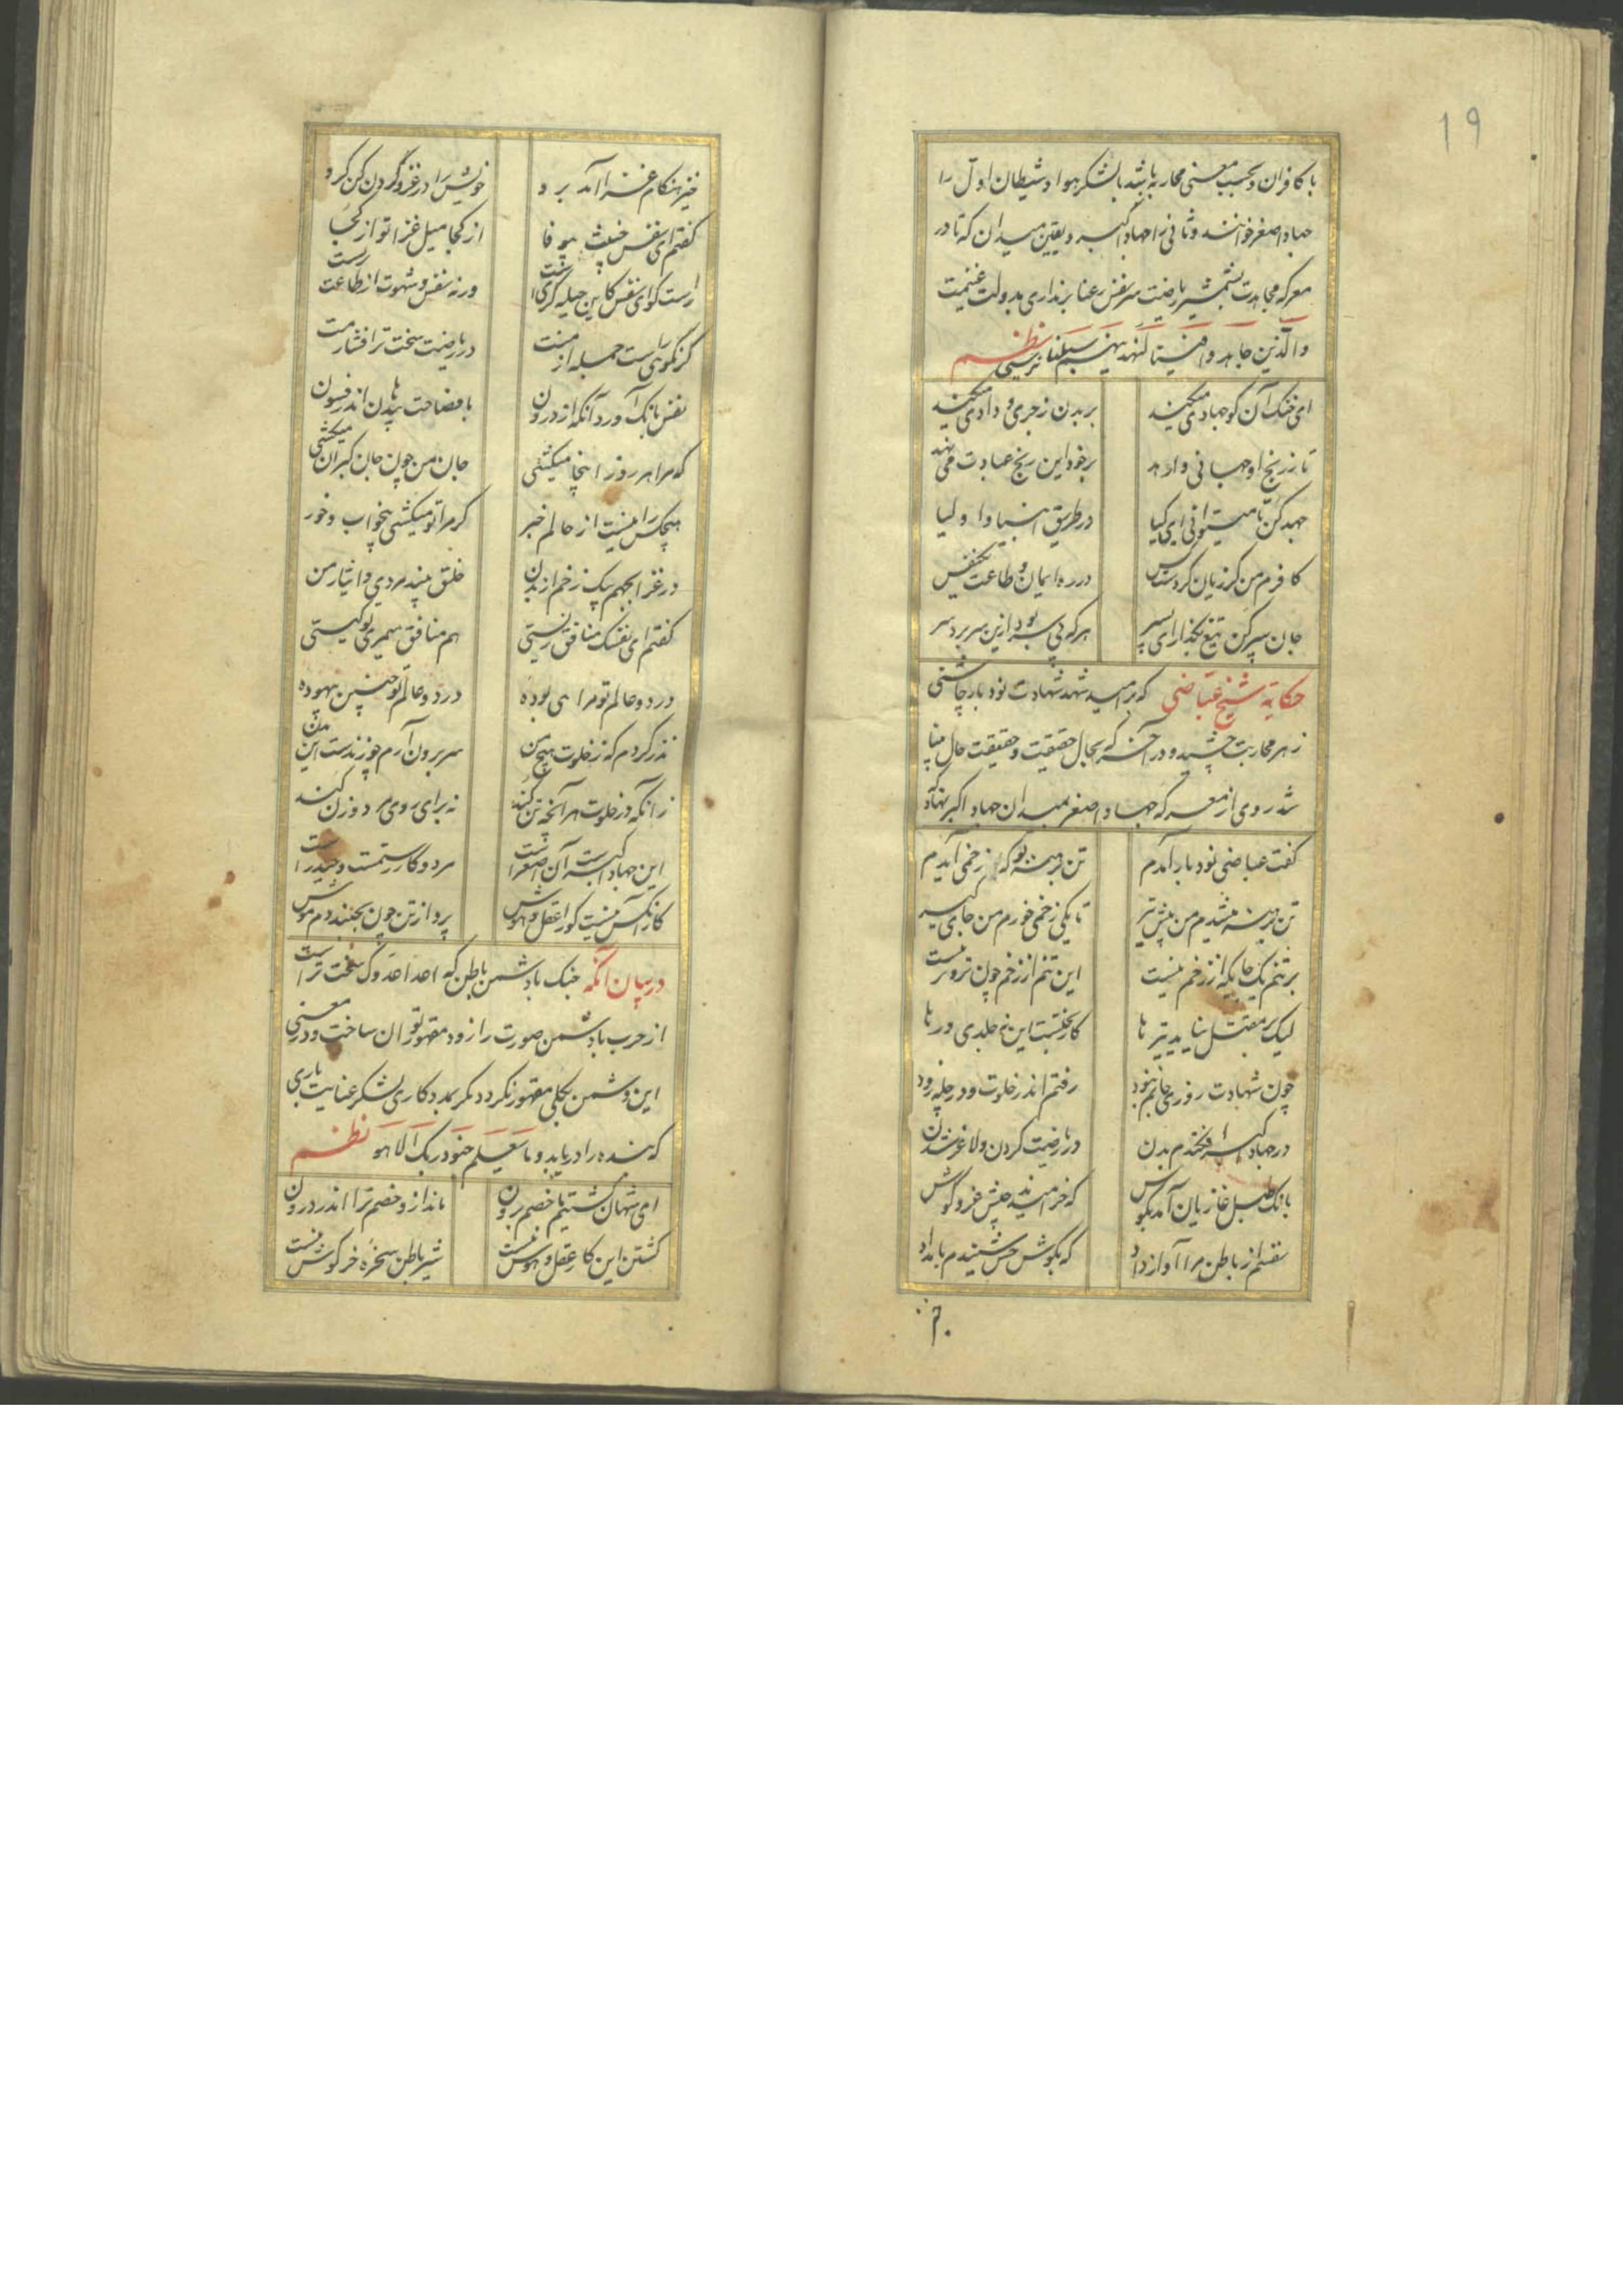 ۱۹
با کافران و بحسب معنی محاربه باشد با لشکر هوا و شیطان اول را
جهاد اصغر خوانند و ثانی را جهاد اکبر و یقین میدان که تا در
معرکه مجاهدت بشمشیر ریاضت سر نفس رعنا برنداری بدولت غنیمت
والذین جاهدوا فینا لنهدینهم سبلنا نرسی نظم
ای خنک آن کو جهادی میکند بر بدن زجری و دادی میکند
تا ز رنج او جهانی وارهد بر خود این رنج عبادت می نهد
جهد کن تا میتوانی ای کیا در طریق انبیا و اولیا
کافرم من گر زیان کردست کس در ره ایمان و طاعت یکنفس
جان سپر کن تیغ بگذار ای پسر هر که بی سر بود ازین سر برد سر
حکایة شیخ عیاضی که بر امید شهد شهادت نود بار چاشنی
زهر محاربت چشید و در آخر که بجال حقیقت و حقیقت حال بینا
شد روی از معرکه جهاد اصغر بمیدان جهاد اکبر نهاد
گفت عیاضی نود بار آمدم تن برهنه بو که زخمی آیدم
تن برهنه میشدم من پیش تیر تا یکی زخمی خورم من جای گیر
بر تنم یک جایگه از زخم نیست این تنم از زخم چون پرویزنیست
لیک بر مقتل نیامد تیرها کار بختست این نه جلدی و دها
چون شهادت روزی جانم نبود رفتم اندر خلوت و در چله زود
در جهاد اکبر افکندم بدن در ریاضت کردن و لاغر شدن
بانک طبل غازیان آمد بگوش که خرامیدند جیش غزو کوش
نفسم از باطن مرا آواز داد که بگوش حس شنیدم بامداد
خیز هنکام غزا آمد برو خویش را در غزو کردن کن گرو
گفتم ای نفس خبیث بیوفا از کجا میل غزا تو از کجا
راست گو ای نفس کاین حیله گریست ورنه نفس و شهوت از طاعت بریست
گر نگوئی راست حمله آرمت در ریاضت سخت تر افشارمت
نفس بانک آورد آنگه از درون با فصاحت بیدهان اندر فسون
که مرا هر روز اینجا میکشی جان من چون جان گبران میکشی
هیچکس را نیست از حالم خبر که مرا تو میکشی بیخواب و خور
در غزا بجهم بیک زخم از بدن خلق بیند مردی و ایثار من
گفتم ای نفسک منافق زیستی هم منافق میمری تو کیستی
در دو عالم تو مرایی بوده در دو عالم تو چنین بیهوده
نذر کردم که ز خلوت هیچ من سر برون نارم چو زندست این بدن
زانکه در خلوت هر آنچه تن کند نه برای روی مرد و زن کند
این جهاد اکبرست آن اصغرست هر دو کار رستمست و حیدرست
کار آنکس نیست کو را عقل و هوش پرد از تن چون بجنبد دم موش
در بیان آنکه جنک با دشمن باطن که اعدا عدوک سخت ترست
از حرب با دشمن صورت را زود مقهور توان ساخت و در معنی
این دشمن بکلی مقهور نگردد مگر بمددکاری لشکر عنایت باری
که بنده را دریابد و ما یعلم جنود ربک الا هو نظم
ای شهان کشتیم ما خصم برون ماند ازو خصم ترا اندر درون
کشتن این کار عقل و هوش نیست شیر باطن سخره خرگوش نیست